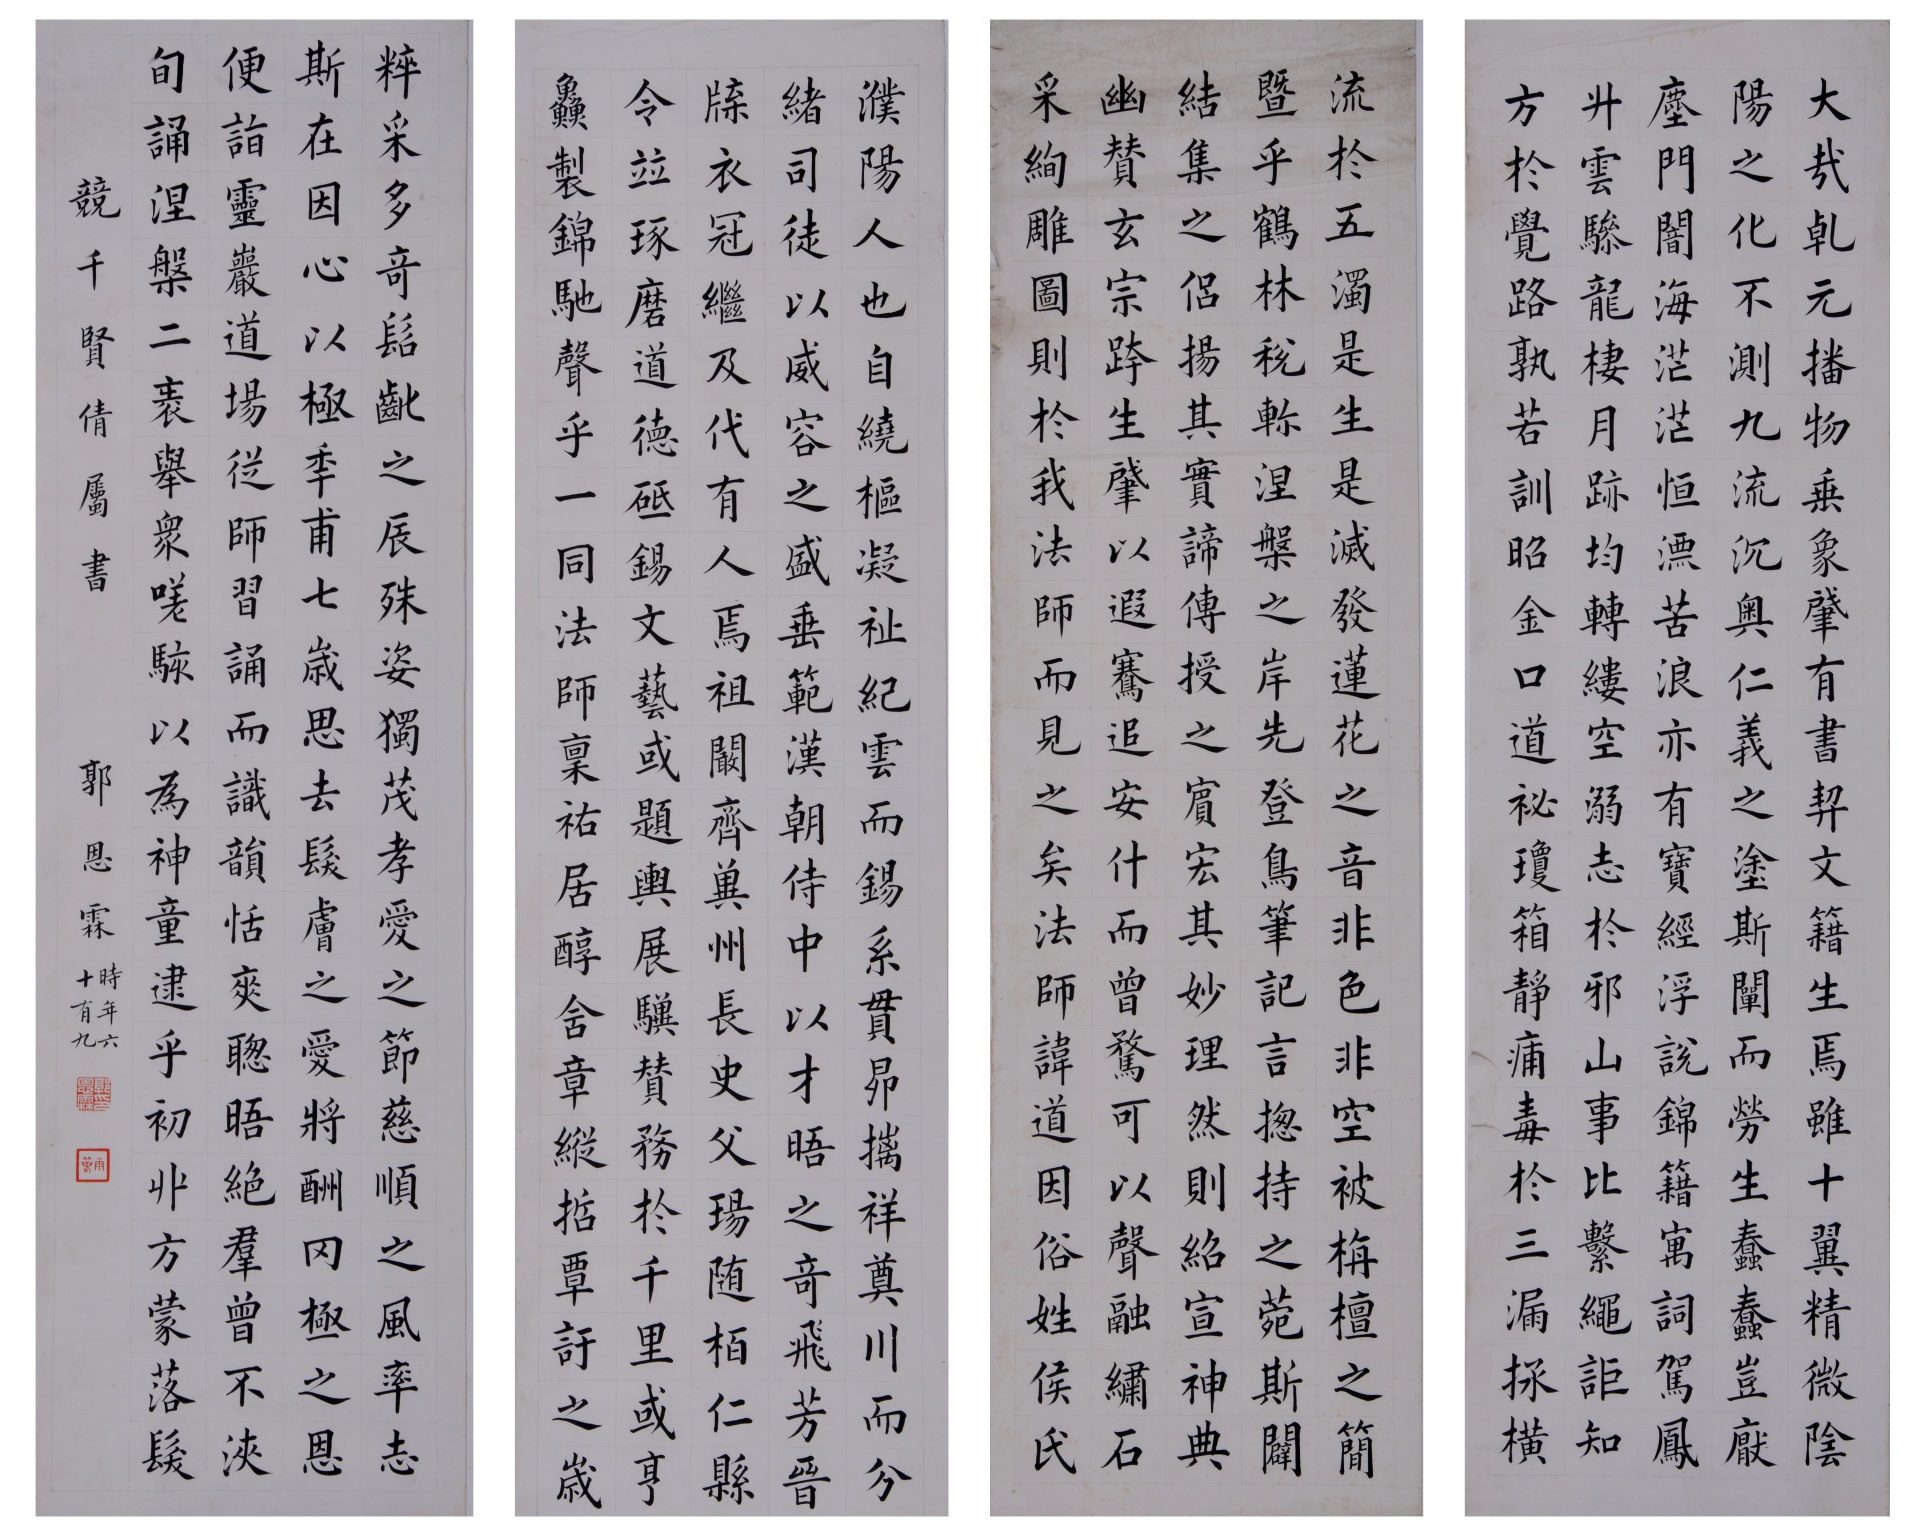 大㦲乹元播物垂象肇有書契文籍生焉雖十翼精微陰
陽之化不測九流沉奥仁義之塗斯闡而勞生蠢蠢豈厭
塵門闇海茫茫恒漂苦浪亦有寶經浮說錦籍寓詞駕鳳
升雲驂龍棲月跡均轉縷空溺志於邪山事比繫繩詎知
方於覺路孰若訓昭金口道祕瓊箱静痛毒於三漏拯橫
流於五濁是生是滅發蓮花之音非色非空被栴檀之簡
暨乎鶴林稅軫涅槃之岸先登鳥筆記言揔持之菀斯闢
結集之侶揚其實諦傳授之賓宏其妙理然則紹宣神典
幽賛玄宗跨生肇以遐騫追安什而曾騖可以聲融繡石
采絢雕圖則於我法師而見之矣法師諱道因俗姓侯氏
濮陽人也自繞樞凝祉紀雲而錫系貫昴摛祥奠川而分
緒司徒以威容之盛垂範漢朝侍中以才晤之竒飛芳晉
牒衣冠繼及代有人焉祖闞齊兾州長史父瑒随栢仁縣
令竝琢磨道德砥錫文藝或題輿展驥賛務於千里或亨
鱻製錦馳聲乎一同法師稟祐居醇舍章縱哲覃訏之歲
粹采多竒髫齔之辰殊姿獨茂孝愛之節慈順之風率志
斯在因心以極秊甫七歲思去髮膚之愛將酬罔極之恩
便詣靈巖道場從師習誦而識韻恬爽聦晤絶羣曾不浹
旬誦涅槃二袠舉衆嗟駭以為神童逮乎初丱方蒙落髮
競千賢倩屬書
郭恩霖
時年六
十有九